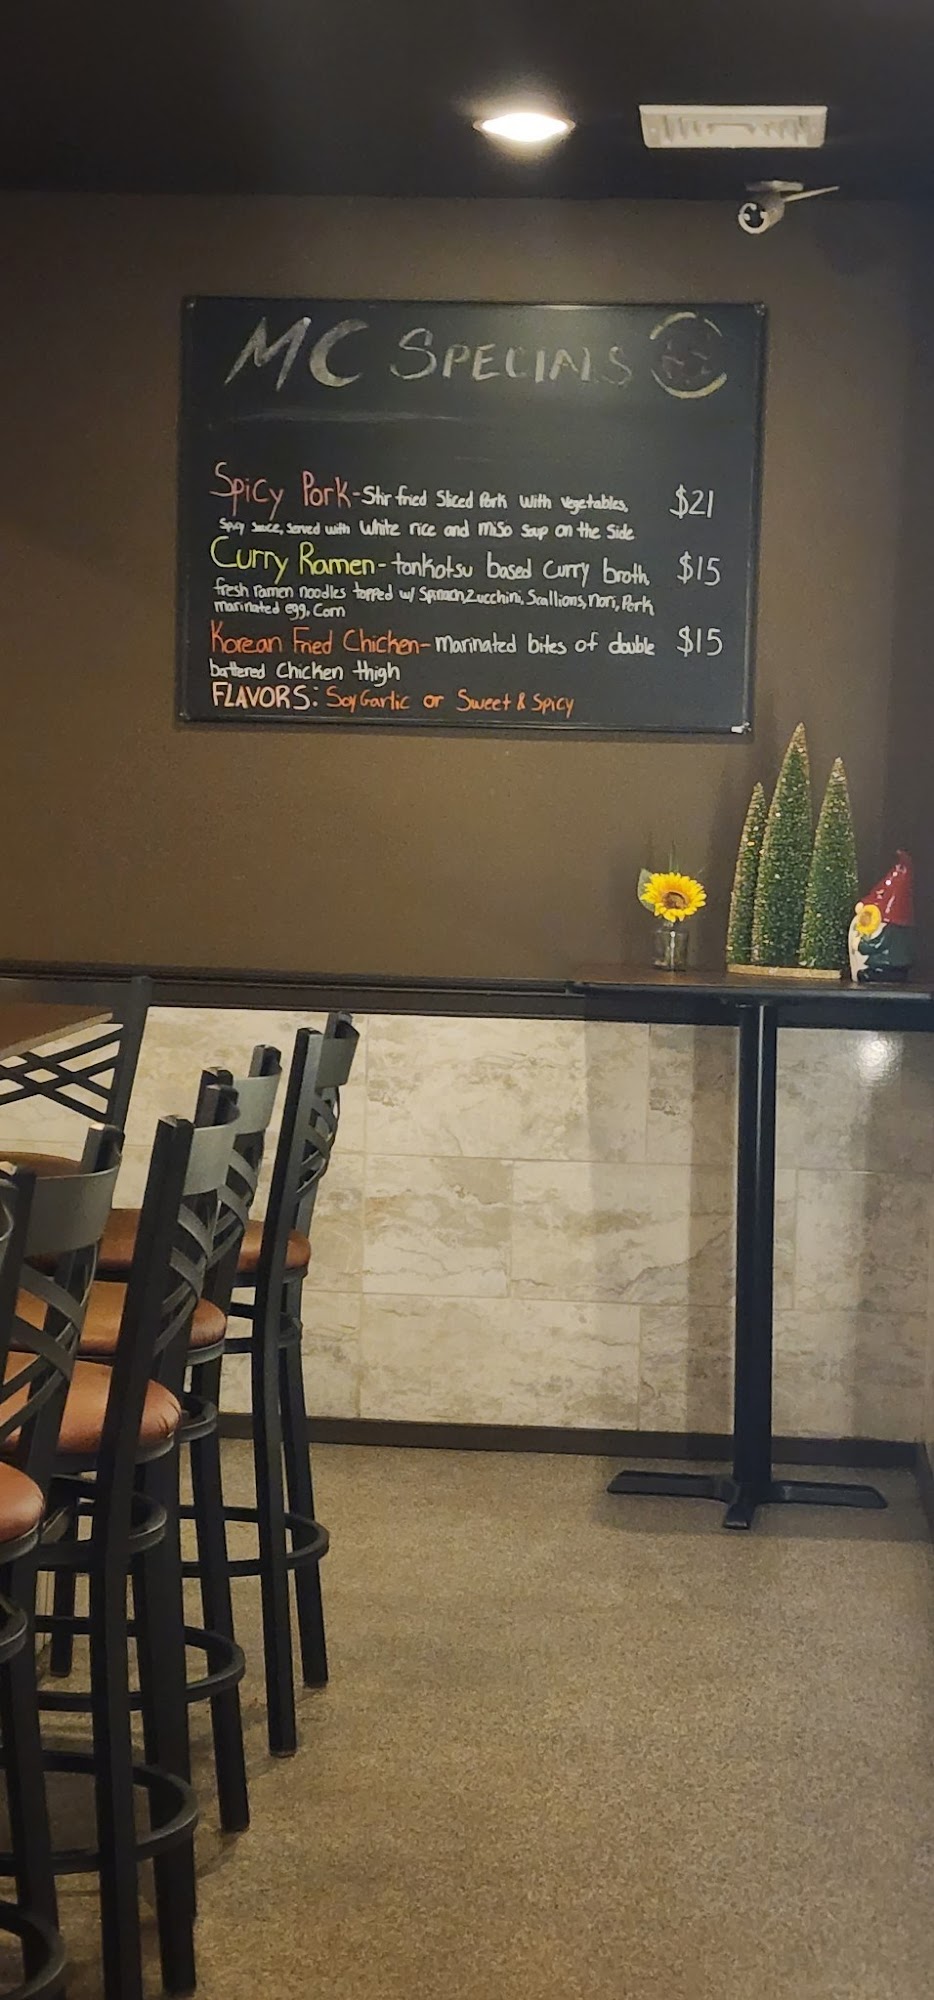 MC SPECIALS
Spicy Pork - Stir fried Sliced Pork with vegetables, $21
Spicy Sauce, Served with White rice and miso soup on the Side
Curry Ramen - tonkotsu based curry broth, $15
fresh ramen noodles topped w/ Spinach, Zucchini, Scallions, nori, Pork
marinated egg, Corn
Korean Fried Chicken - marinated bites of double $15
battered Chicken thigh
FLAVORS: Soy Garlic or Sweet & Spicy